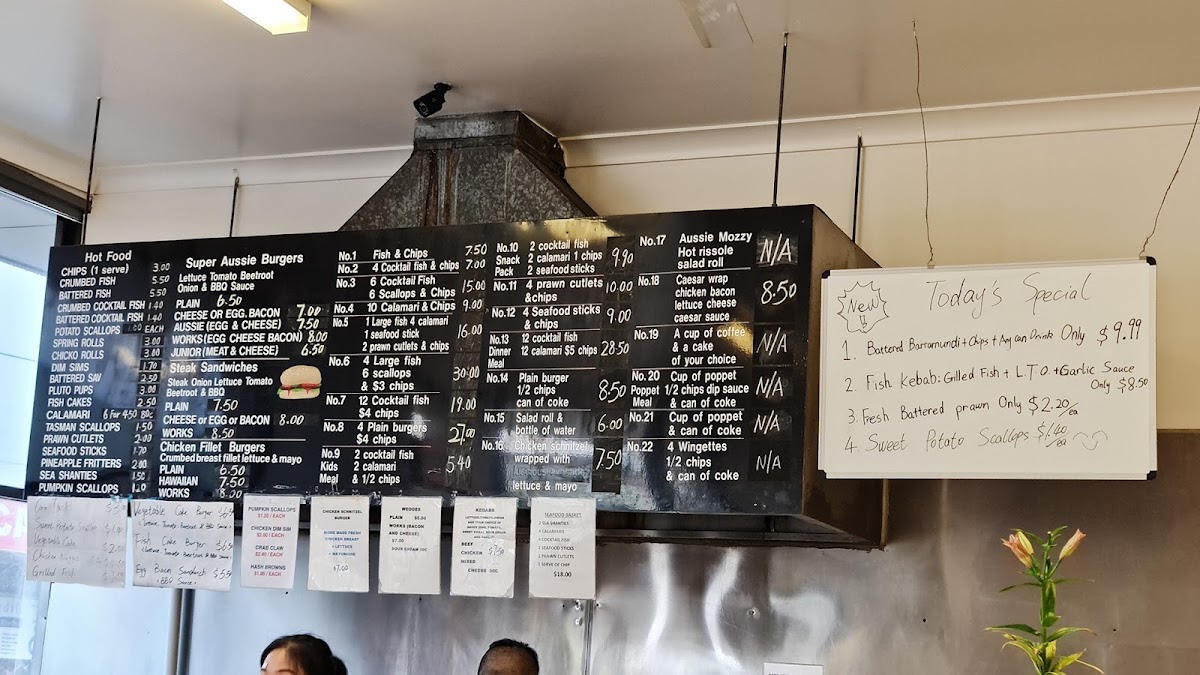 Hot Food
CHIPS (1 serve) 3.00
CRUMBED FISH 5.50
BATTERED FISH 5.50
CRUMBED COCKTAIL FISH 1.40
BATTERED COCKTAIL FISH 1.40
POTATO SCALLOPS 1.00 EACH
SPRING ROLLS 3.00
CHICKO ROLLS 3.00
DIM SIMS 1.70
BATTERED SAV 2.50
PLUTO PUPS 3.00
FISH CAKES 2.50
CALAMARI 6 For 4.50 80c
TASMAN SCALLOPS 1.50
PRAWN CUTLETS 2.00
SEAFOOD STICKS 1.70
PINEAPPLE FRITTERS 2.00
SEA SHANTIES 1.50
PUMPKIN SCALLOPS 1.20
Super Aussie Burgers
Lettuce Tomato Beetroot
Onion & BBQ Sauce
PLAIN 6.50
CHEESE OR EGG. BACON 7.00
AUSSIE (EGG & CHEESE) 7.50
WORKS (EGG CHEESE BACON) 8.00
JUNIOR (MEAT & CHEESE) 6.50
Steak Sandwiches
Steak Onion Lettuce Tomato
Beetroot & BBQ
PLAIN 7.50
CHEESE or EGG or BACON 8.00
WORKS 8.50
Chicken Fillet Burgers
Crumbed breast fillet lettuce & mayo
PLAIN 6.50
HAWAIIAN 7.50
WORKS 8.00
No.1 Fish & Chips 7.50
No.2 4 Cocktail fish & chips 7.00
No.3 6 Cocktail Fish
6 Scallops & Chips 15.00
No.4 10 Calamari & Chips 9.00
No.5 1 Large fish 4 calamari
1 seafood stick
2 prawn cutlets & chips 16.00
No.6 4 Large fish
6 scallops
& $3 chips 30.00
No.7 12 Cocktail fish
$4 chips 19.00
No.8 4 Plain burgers
$4 chips 27.00
No.9 2 cocktail fish
Kids 2 calamari
Meal & 1/2 chips 5.40
No.10 2 cocktail fish
Snack 2 calamari 1 chips
Pack 2 seafood sticks 9.90
No.11 4 prawn cutlets
&chips 10.00
No.12 4 Seafood sticks
& chips 9.00
No.13 12 cocktail fish
Dinner 12 calamari $5 chips 28.50
Meal
No.14 Plain burger
1/2 chips
& can of coke 8.50
No.15 Salad roll &
bottle of water 6.00
No.16 Chicken schnitzel
wrapped with
lettuce & mayo 7.50
No.17 Aussie Mozzy
Hot rissole
salad roll N/A
No.18 Caesar wrap
chicken bacon
lettuce cheese
caesar sauce 8.50
No.19 A cup of coffee
& a cake
of your choice N/A
No.20 Cup of poppet
Poppet 1/2 chips dip sauce
Meal & can of coke N/A
No.21 Cup of poppet
& can of coke N/A
No.22 4 Wingettes
1/2 chips
& can of coke N/A
New
Today's Special
1. Battered Barramundi + Chips + Any can Drink Only $9.99
2. Fish Kebab: Grilled Fish + L.T.O. + Garlic Sauce
Only $8.50
3. Fresh Battered prawn Only $2.20/ea
4. Sweet Potato Scallops $1.40/ea
Sweet Potato Scallop
Vegetable Cake
Grilled Fish
Vegetable Cake Burger
Fish Cake Burger
Egg Bacon Sandwich
BBQ Sauce
PUMPKIN SCALLOPS
$1.20 / EACH
CHICKEN DIM SIM
$2.00 / EACH
CRAB CLAW
$2.40 / EACH
HASH BROWNS
$1.00 / EACH
CHICKEN SCHNITZEL
BURGER
HOME MADE FRESH
CHICKEN BREAST
+ LETTUCE
+ MAYONNAISE
$7.00
WEDGES
PLAIN $5.00
WORKS (BACON
AND CHEESE)
$7.00
SOUR CREAM 50C
KEBABS
BEEF
CHICKEN $7.50
MIXED
CHEESE 50C
SEAFOOD BASKET
2 SEA SHANTIES
4 CALAMARI
2 COCKTAIL FISH
2 SEAFOOD STICKS
2 PRAWN CUTLETS
1 SERVE OF CHIP
$18.00